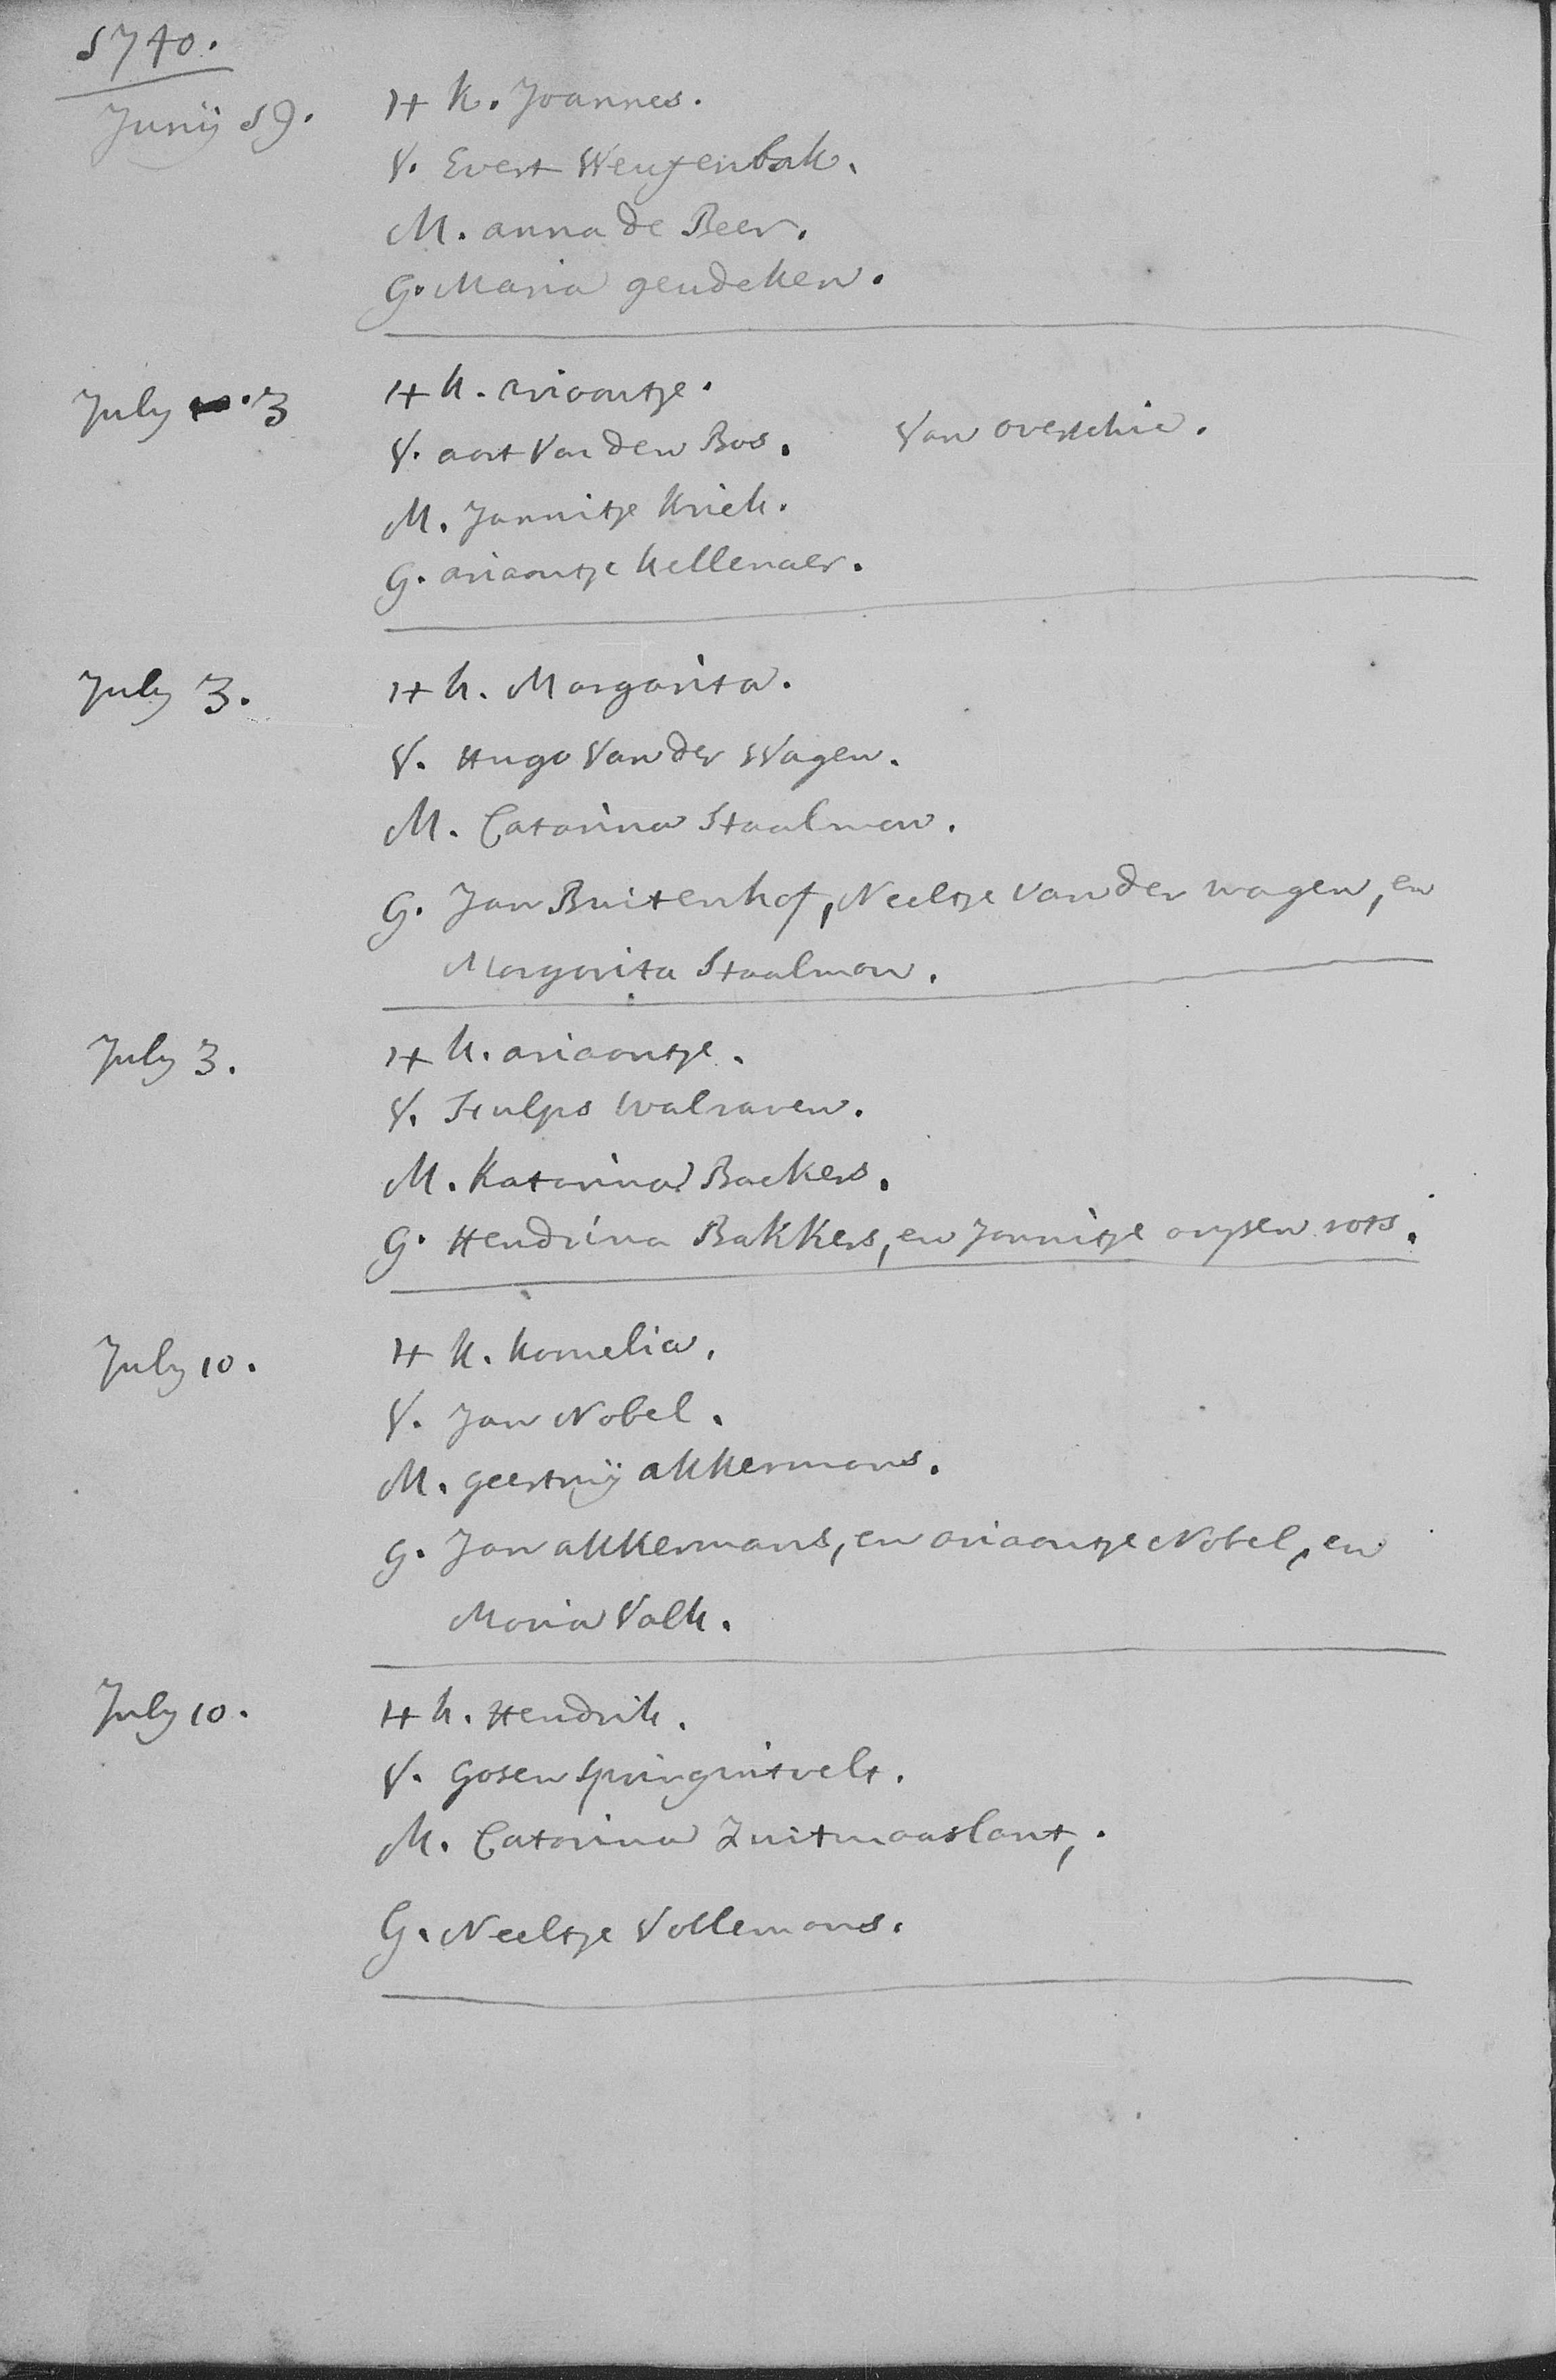 1740.
Junij 19.
H K. Joannes.
V. Evert Weugenbak.
M. anna de Beer.
G. Maria geudeken.
July 3
H K. Ariaantje.
V. aart Van den Bos. Van overschie.
M. Jannitje Kriek.
G. ariaantje Kellenaer.
July 3.
H K. Margarita.
V. Hugo Van der Wagen.
M. Catarina Staalman.
G. Jan Buitenhof, Neeltje van der wagen, en
Margarita Staalman.
July 3.
H K. ariaantje.
V. Stulps walraven.
M. Katarina Backers.
G. Hendrina Bakkers, en Jannitje rots.
July 10.
H K. Kornelia.
V. Jan Nobel.
M. geertruij akkermans.
G. Jan akkermans, en ariaantje Nobel, en
Maria Valk.
July 10.
H K. Hendrik.
V. Gosen Springintvelt.
M. Catarina Zuitmaaslant,.
G. Neeltje Vollemans.